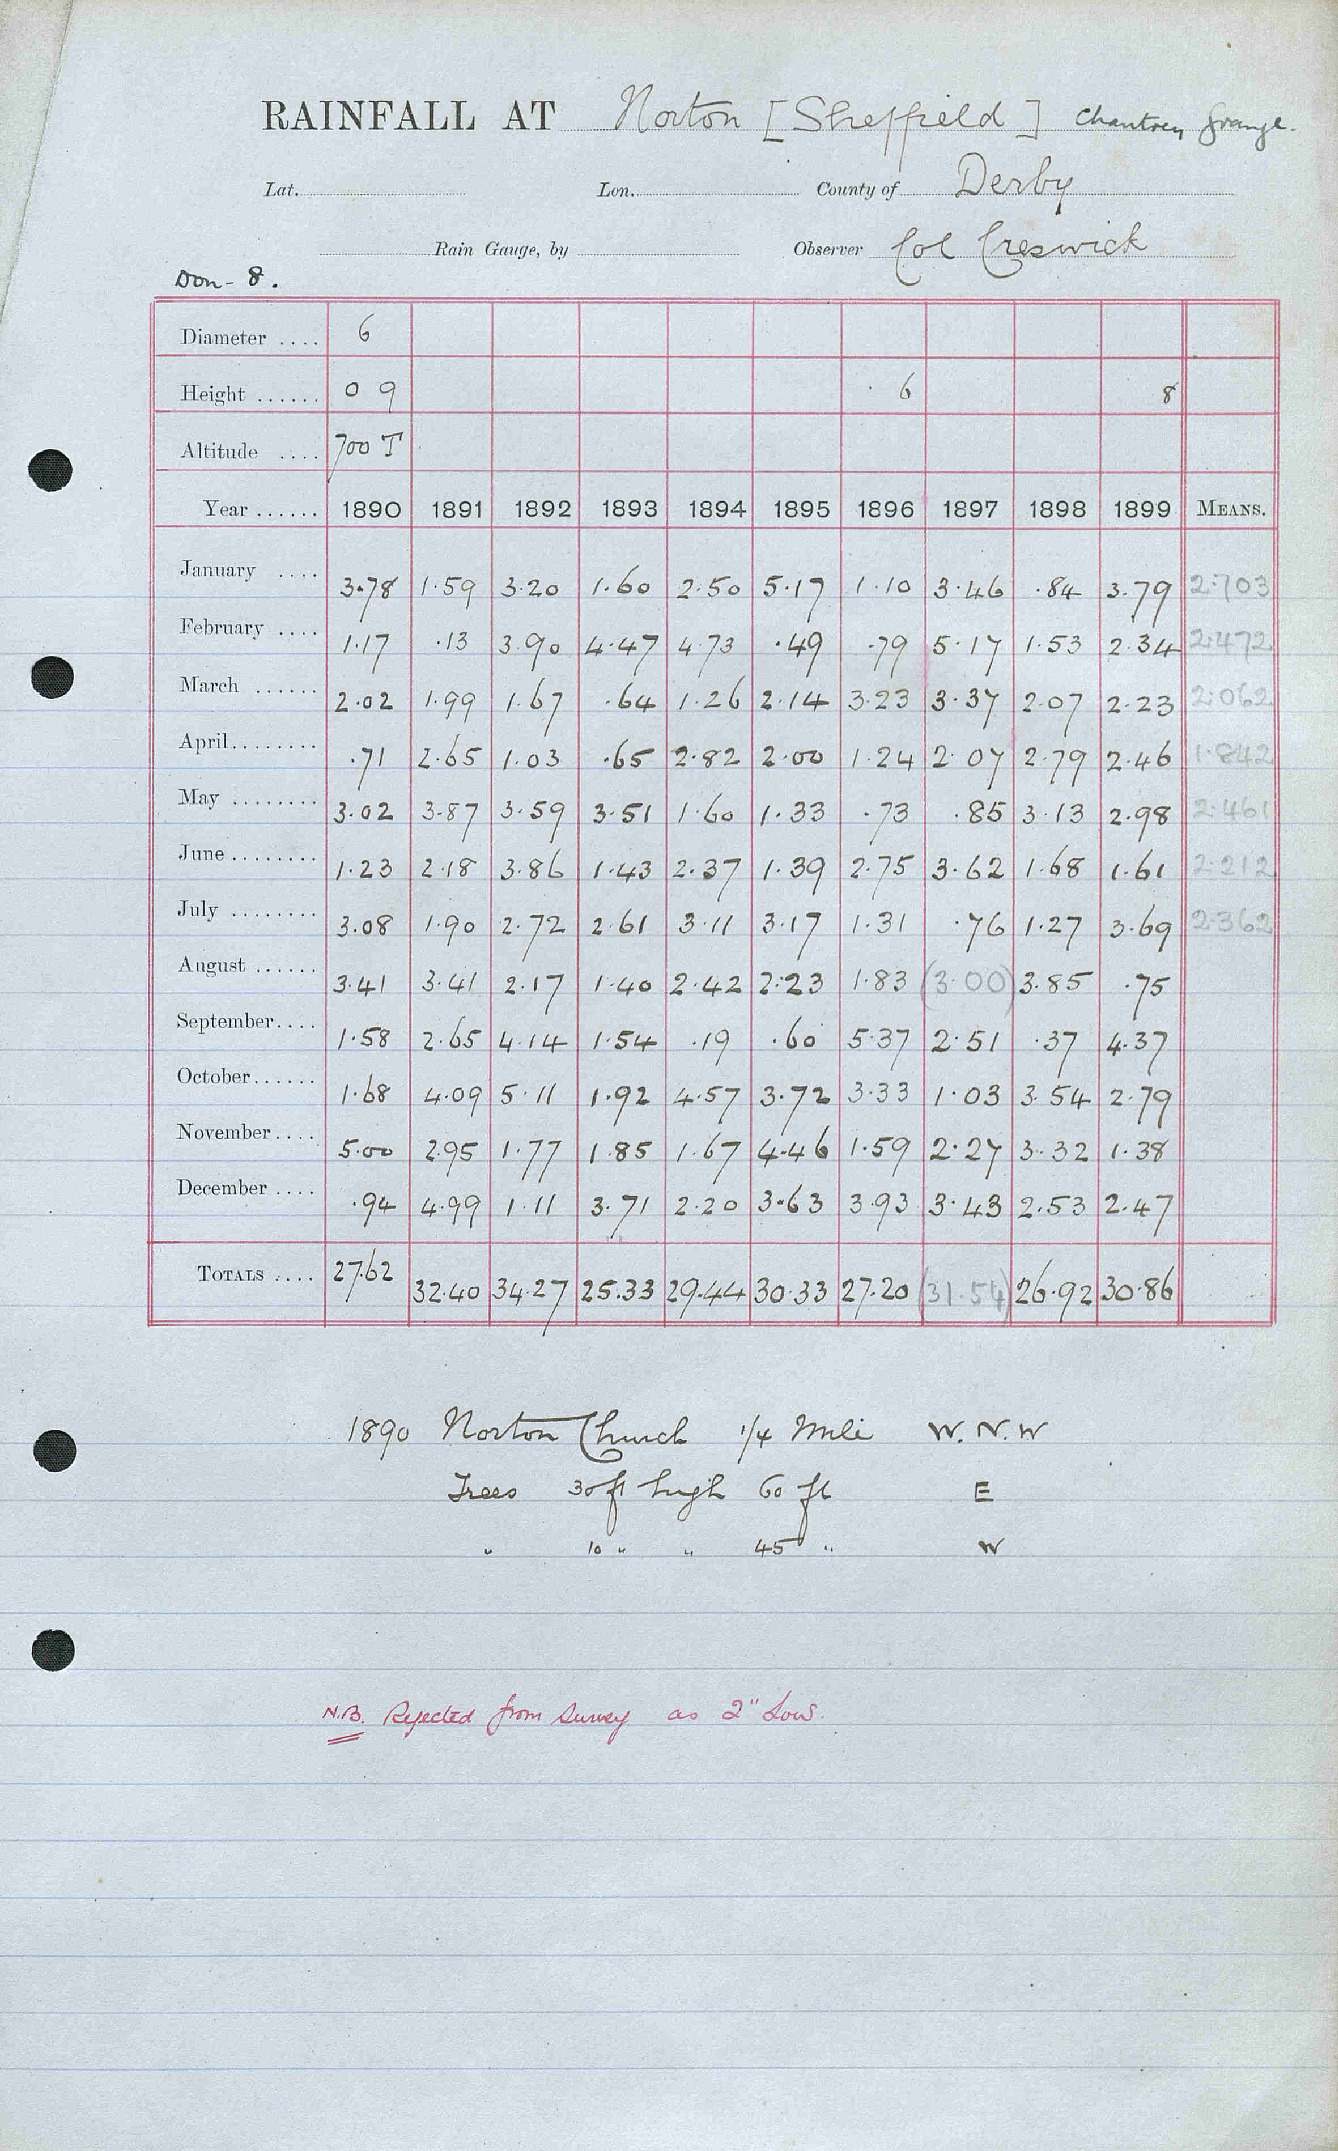 RAINFALL AT Norton [Sheffield] Chantrey Grange.
Lat. Lon. County of Derby
Rain Gauge, by Observer Col Creswick
Don - 8.
Diameter .... 6
Height ...... 0 9 6 8
Altitude .... 700 T
Year ...... 1890 1891 1892 1893 1894 1895 1896 1897 1898 1899 MEANS.
January .... 3.78 1.59 3.20 1.60 2.50 5.17 1.10 3.46 .84 3.79 2.703
February .... 1.17 .13 3.90 4.47 4.73 .49 .79 5.17 1.53 2.34 2.472
March ...... 2.02 1.99 1.67 .64 1.26 2.14 3.23 3.37 2.07 2.23 2.062
April........ .71 2.65 1.03 .65 2.82 2.00 1.24 2.07 2.79 2.46 1.842
May ........ 3.02 3.87 3.59 3.51 1.60 1.33 .73 .85 3.13 2.98 2.461
June ........ 1.23 2.18 3.86 1.43 2.37 1.39 2.75 3.62 1.68 1.61 2.212
July ........ 3.08 1.90 2.72 2.61 3.11 3.17 1.31 .76 1.27 3.69 2.362
August ...... 3.41 3.41 2.17 1.40 2.42 2.23 1.83 (3.00) 3.85 .75
September.... 1.58 2.65 4.14 1.54 .19 .60 5.37 2.51 .37 4.37
October...... 1.68 4.09 5.11 1.92 4.57 3.72 3.33 1.03 3.54 2.79
November.... 5.00 2.95 1.77 1.85 1.67 4.46 1.59 2.27 3.32 1.38
December .... .94 4.99 1.11 3.71 2.20 3.63 3.93 3.43 2.53 2.47
TOTALS .... 27.62 32.40 34.27 25.33 29.44 30.33 27.20 (31.54) 26.92 30.86
1890 Norton Church 1/4 Mile W.N.W
Trees 30 ft high 60 ft E
" 10 " " 45 " W
N.B. Rejected from Survey as 2" Low.